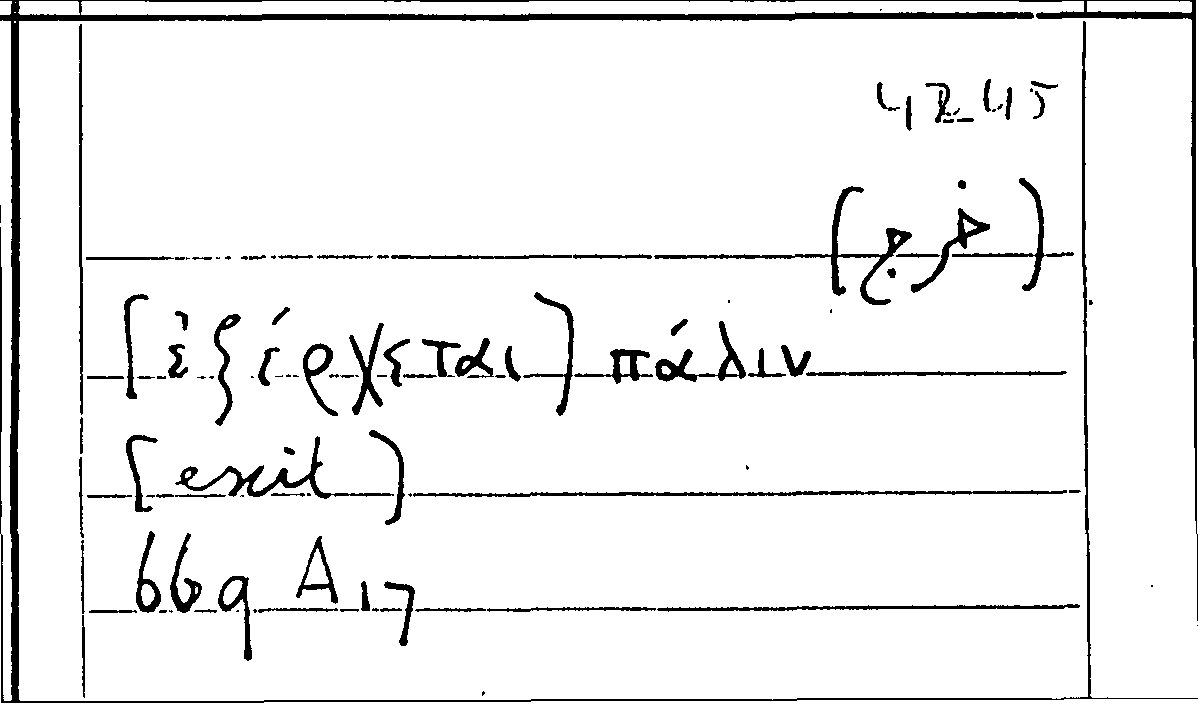 42_45
(خرج)
[ἐξέρχεται] πάλιν
[exit]
669 A 17